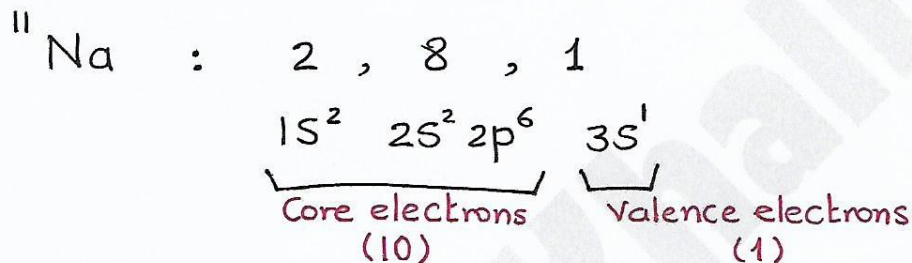 ¹¹Na : 2 , 8 , 1
1S² 2S² 2p⁶ 3S¹
Core electrons Valence electrons
(10) (1)